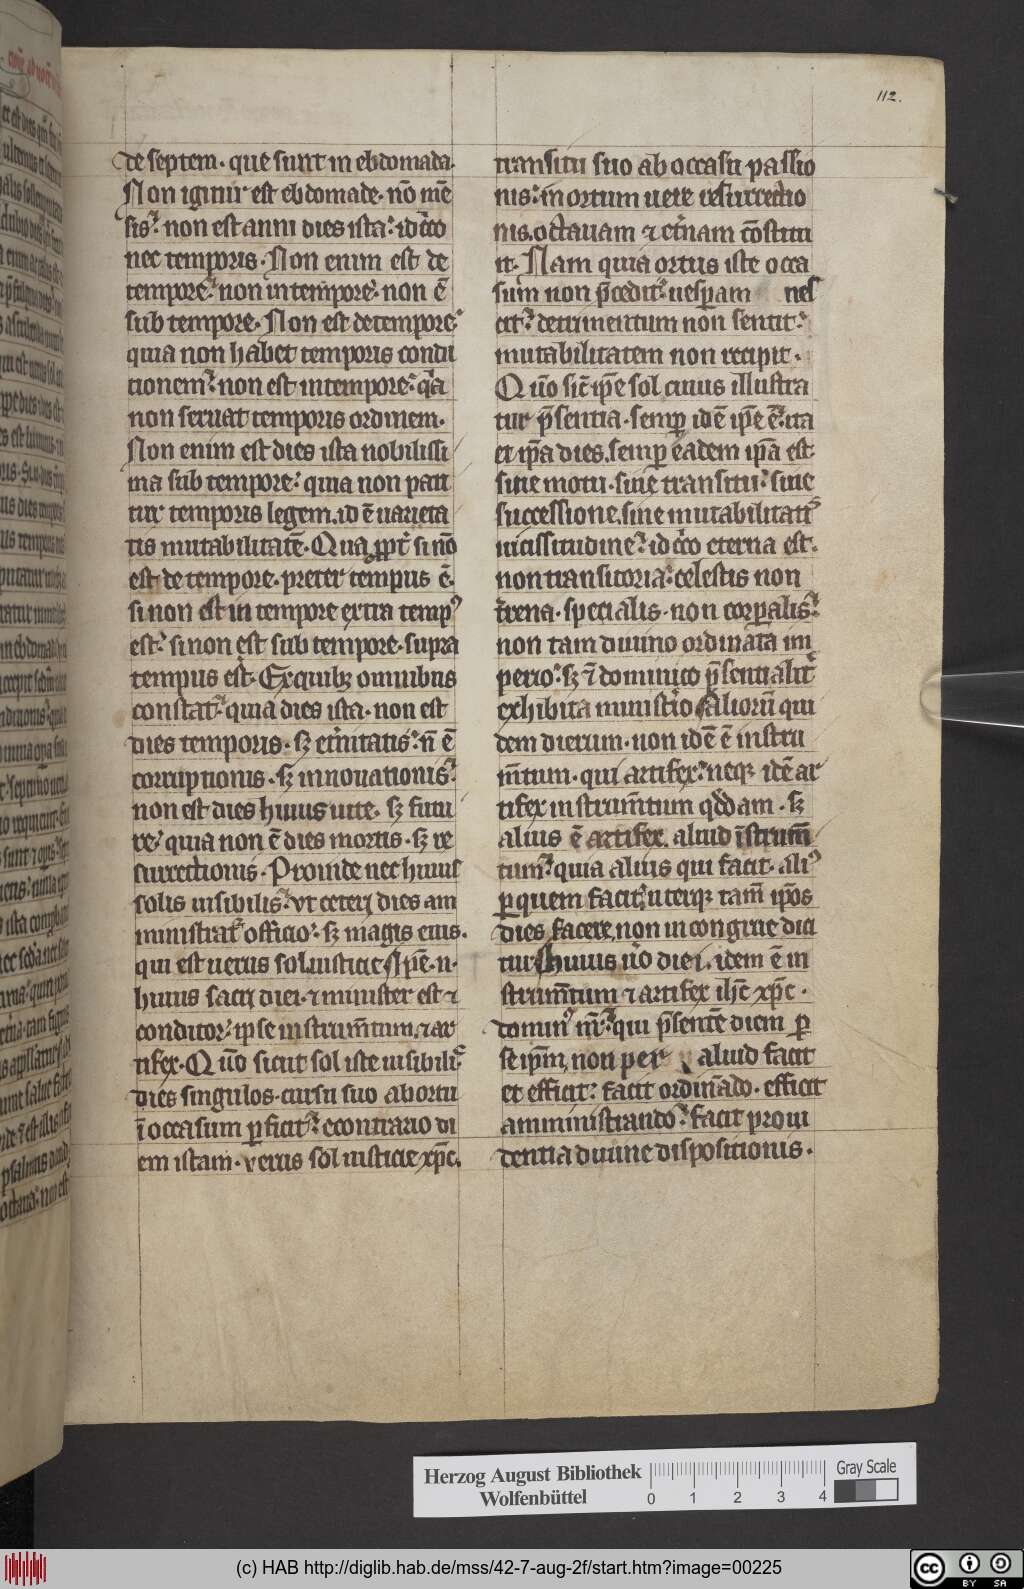 112.
de septem. que sunt in ebdomada.
Non igitur est ebdomade. nō mē
sis. non est anni dies ista. idc̄co
nec temporis. Non enim est de
tempore. non in tempore. non ē
sub tempore. Non est de tempore.
quia non habet temporis condi
tionem. non est in tempore. qͥa
non seruat temporis ordinem.
Non enim est dies ista nobilissi
ma sub tempore. quia non pati
tur temporis legem. id ē uarieta
tis mutabilitatē. Qua ꝓpt̄ si nō
est de tempore. preter tempus ē.
si non est in tempore extra tempꝰ
est. si non est sub tempore. supra
tempus est. Ex quibꝫ omnibus
constat. quia dies ista. non est
dies temporis. sꝫ et̄nitatis. n̄ ē
corruptionis. sꝫ innouationis.
non est dies huius uite. sꝫ futu
re. quia non ē dies mortis. sꝫ re
surrectionis. Proinde nec huius
solis uisibilis. ut ceteri dies am
ministrat᷑ officio. sꝫ magis eius.
qui est uerus sol iusticie xp̄c. n.
huius sacri diei. ⁊ minister est ⁊
conditor. ipse instrum̄tum. ⁊ ar
tifex. Qūo sicut sol iste uisibilis
dies singulos. cursu suo ab ortu
ī occasum ꝑficit. econtrario di
em istam. uerus sol iusticie xp̄c.
transitu suo ab occasu passio
nis. in ortum uere resurrectio
nis. octauam ⁊ et̄nam cōstitu
it. Nam quia ortus iste occa
sum non p̄cedit. uesꝑam nes
cit. detrimentum non sentit.
mutabilitatem non recipit.
Qūo sic̄ ip̄e sol cuius illustra
tur p̄sentia. semꝑ idē ip̄e ē. ita
et ip̄a dies. semꝑ eadem ip̄a est.
sine motu. sine transitu. sine
successione. sine mutabilitatis
uicissitudine. idc̄co eterna est.
non transitoria. celestis non
t̄rena. specialis. non corꝑalis.
non tam diuino ordinata im
perio. sꝫ ī dominico p̄sentialit̄
exhibita minist̄io. Aliorū qui
dem dierum. non idē ē instru
m̄tum. qui artifex. neqꝫ idē ar
tifex instrum̄tum qddam. sꝫ
alius ē artifex. aliud īstrum̄
tum. quia alius qui facit. aliꝰ
ꝑ quem facit. uterqꝫ tam̄ ip̄os
dies facere. non incongrue dici
tur. Huius ūo diei. idem ē in
strum̄tum ⁊ artifex ih̄c xp̄c.
dominꝰ nr̄. qui p̄sentē diem ꝑ
se ip̄m. non per aliud facit
et efficit. facit ordinādo. efficit
amministrando. facit proui
dentia diuine dispositionis.
Herzog August Bibliothek
Wolfenbüttel
0 1 2 3 4
Gray Scale
(c) HAB http://diglib.hab.de/mss/42-7-aug-2f/start.htm?image=00225
cc BY SA